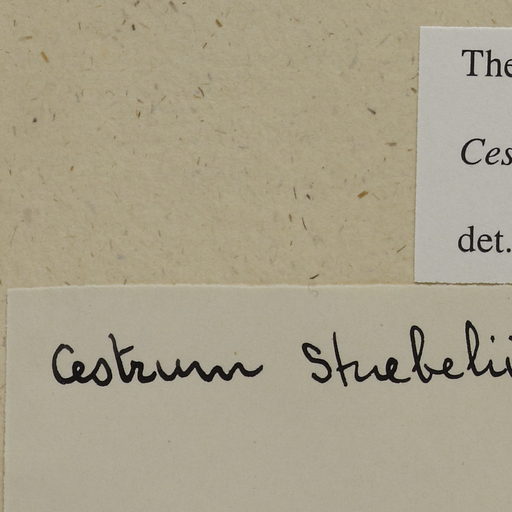 The
Ces
det.
Cestrum Struebelii